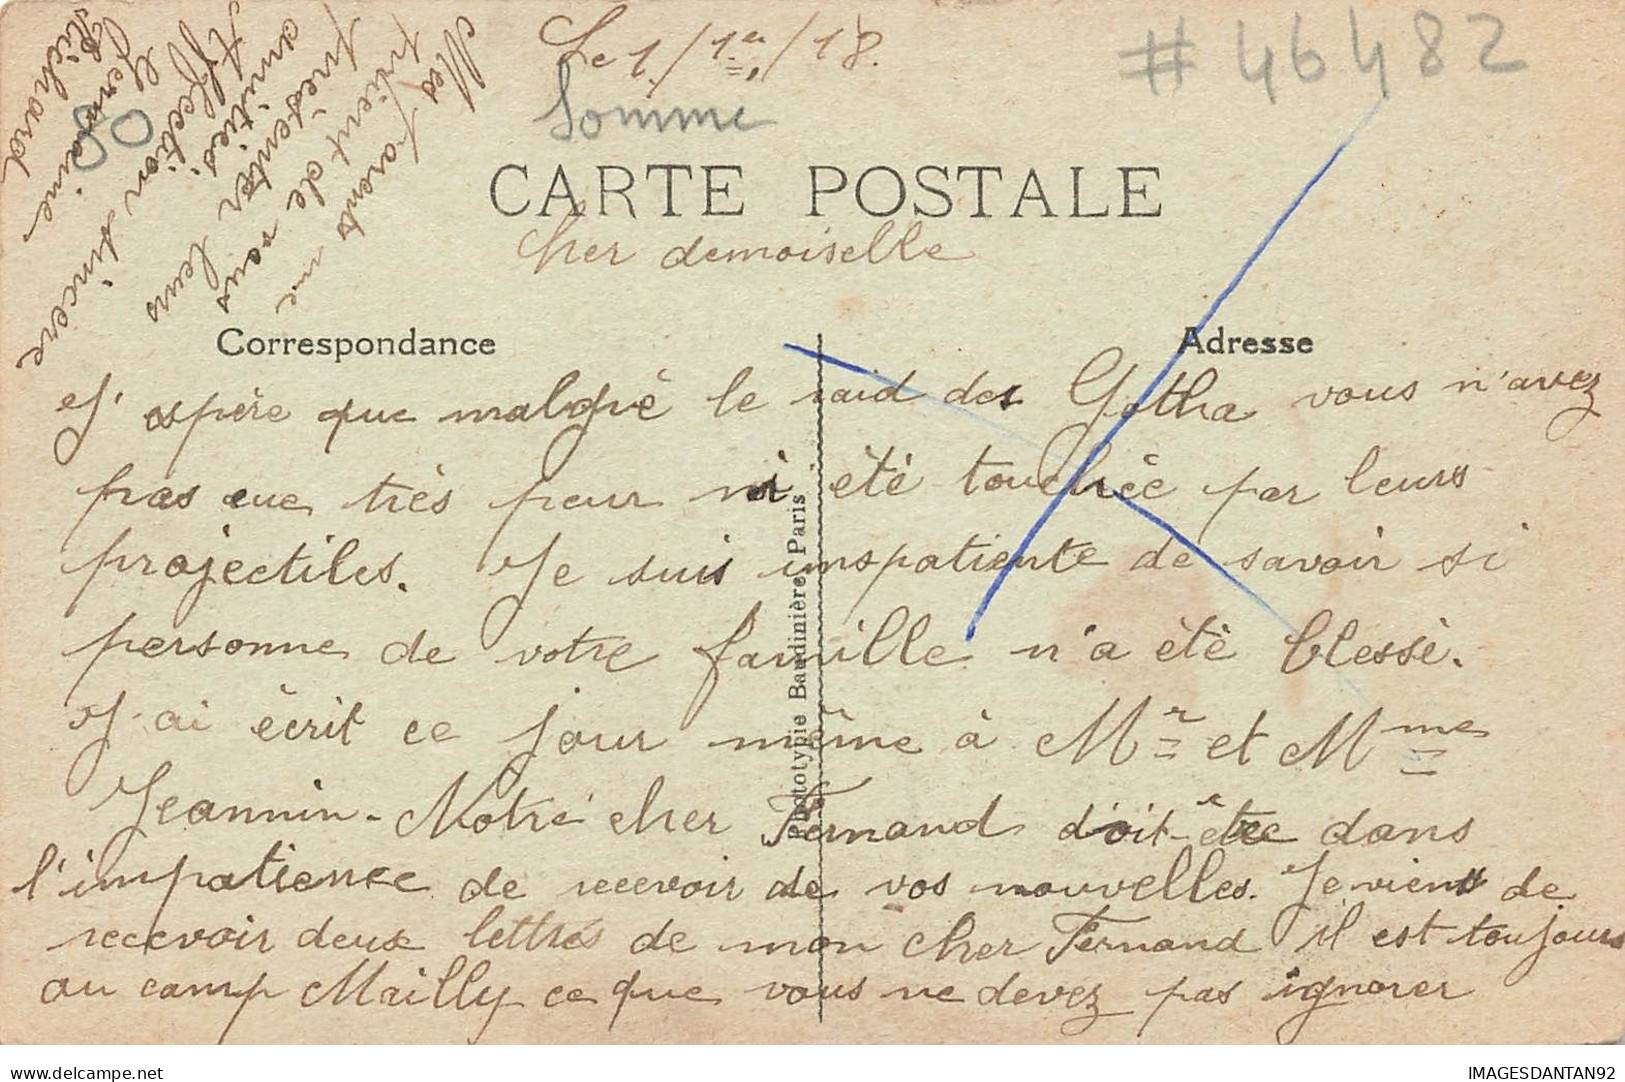 Le 1/1er/18.
# 46482
Somme
80
CARTE POSTALE
Cher demoiselle
Correspondance
Adresse
J'espère que malgré le raid des Gotha vous n'avez
pas eue très peur ni été touchée par leurs
projectiles. Je suis imspatiente de savoir si
personne de votre famille n'a été blessé.
J'ai écrit ce jour même à Mr et Mme
Jeannin. Notre cher Fernand doit être dans
l'impatience de recevoir de vos nouvelles. Je viens de
recevoir deux lettres de mon cher Fernand il est toujours
au camp Mailly ce que vous ne devez pas ignorer
Mes Parents me
prient de vous
présenter leurs
amitiés
Affection sincère
Germaine
Richard
Phototypie Baudinière, Paris
delcampe.net
IMAGESDANTAN92